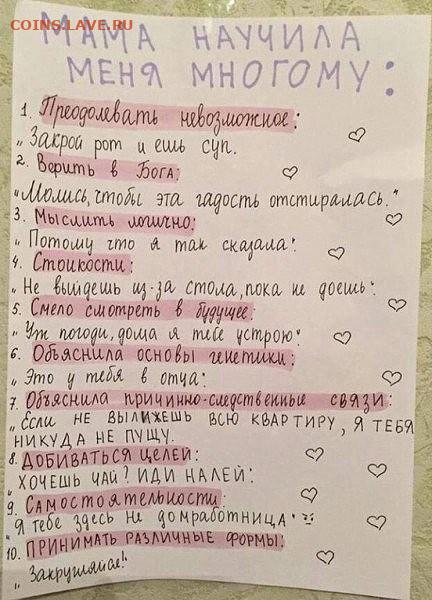 COINS.LAVE.RU
МАМА НАУЧИЛА
МЕНЯ МНОГОМУ:
1. Преодолевать невозможное:
„Закрой рот и ешь суп.
2. Верить в Бога:
"Молись, чтобы эта гадость отстиралась."
3. Мыслить логично:
„Потому что я так сказала".
4. Стойкости:
„Не выйдешь из-за стола, пока не доешь".
5. Смело смотреть в будущее:
„Уж погоди, дома я тебе устрою".
6. Объяснила основы генетики:
„Это у тебя в отца".
7. Объяснила причинно-следственные связи:
„Если не вылижешь всю квартиру, я тебя
никуда не пущу.
8. Добиваться целей:
„Хочешь чай? Иди налей".
9. Самостоятельности:
"Я тебе здесь не домработница"
10. Принимать различные формы:
„Закругляйся!"